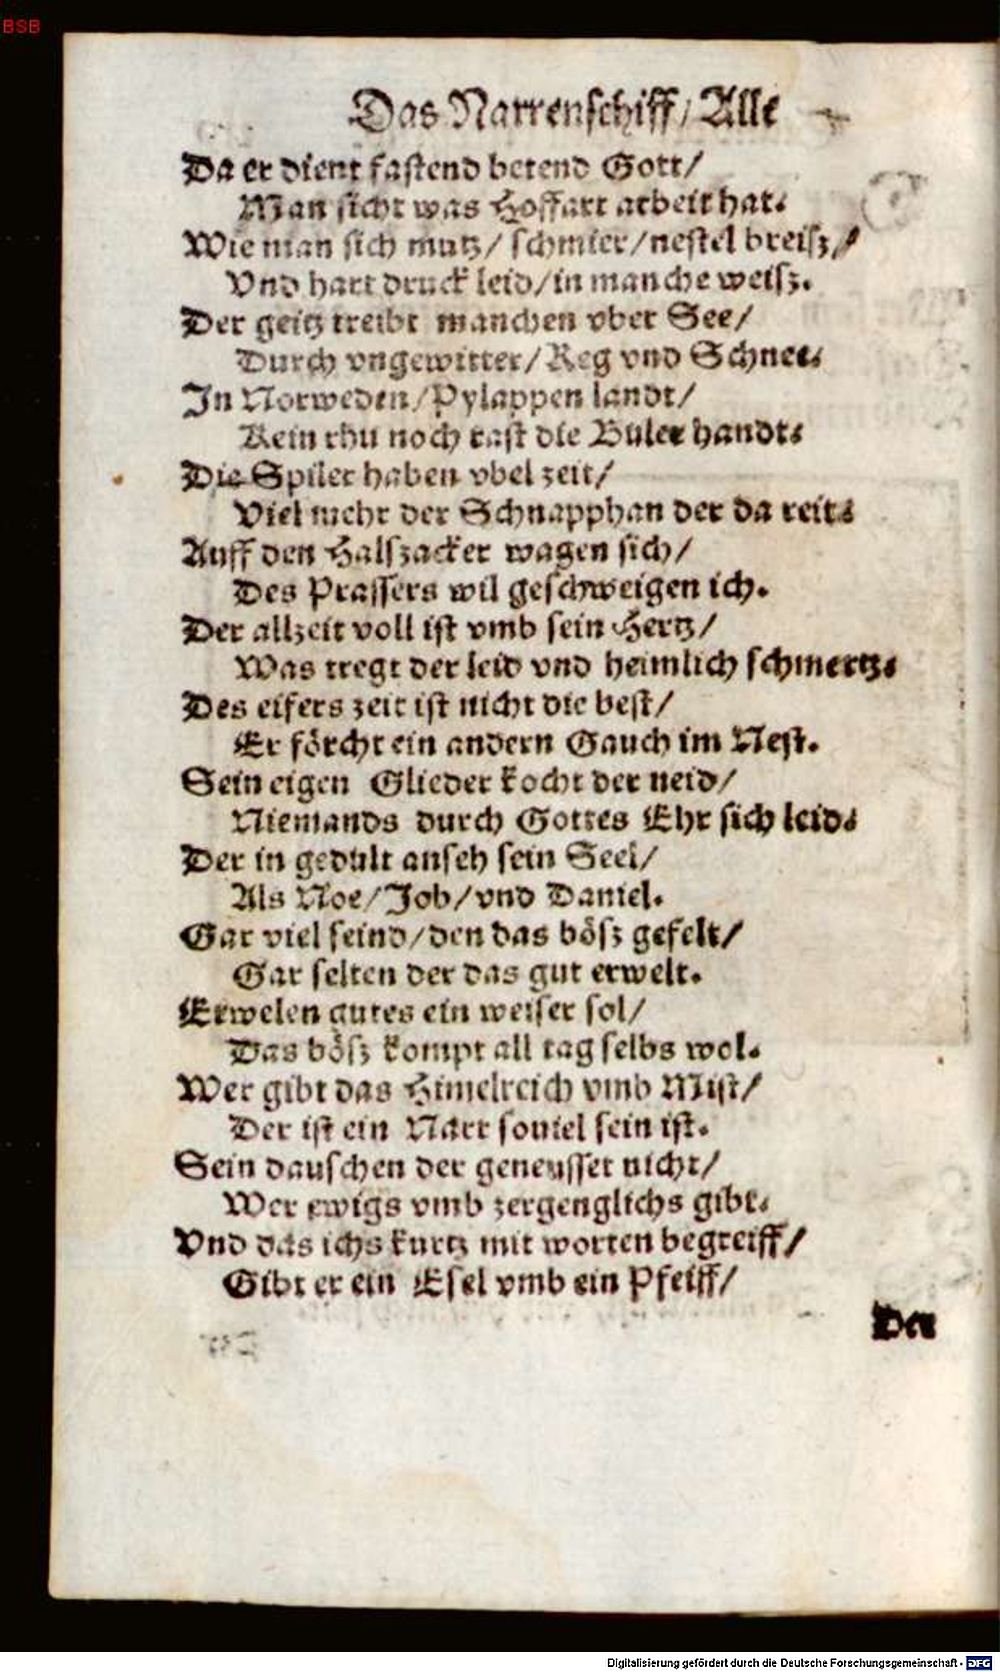 BSB
Das Narrenschiff / Alle
Da er dient fastend betend Gott /
Man sicht was Hoffart arbeit hat.
Wie man sich mutz / schmier / nestel breisz /
Vnd hart druck leid / in manche weisz.
Der geitz treibt manchen vber See /
Durch vngewitter / Reg vnd Schnee.
In Norweden / Pylappen landt /
Kein rhu noch rast die Buler handt.
Die Spiler haben vbel zeit /
Viel mehr der Schnapphan der da reit.
Auff den Halszacker wagen sich /
Des Prassers wil geschweigen ich.
Der allzeit voll ist vmb sein Hertz /
Was tregt der leid vnd heimlich schmertz.
Des eifers zeit ist nicht die best /
Er förcht ein andern Gauch im Nest.
Sein eigen Glieder kocht der neid /
Niemands durch Gottes Ehr sich leid.
Der in gedult anseh sein Seel /
Als Noe / Job / vnd Daniel.
Gar viel seind / den das bösz gefelt /
Gar selten der das gut erwelt.
Erwelen gutes ein weiser sol /
Das bösz kompt all tag selbs wol.
Wer gibt das Himelreich vmb Mist /
Der ist ein Narr souiel sein ist.
Sein dauschen der geneusset nicht /
Wer ewigs vmb zergenglichs gibt.
Vnd das ichs kurtz mit worten begreiff /
Gibt er ein Esel vmb ein Pfeiff /
Den
Digitalisierung gefördert durch die Deutsche Forschungsgemeinschaft - DFG